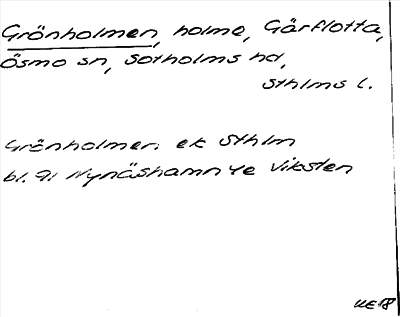 Grönholmen, holme, Gårflotta,
Ösmo sn, Sotholms hd,
Sthlms l.
Grönholmen. ek Sthlm
bl. 9i Nynäshamn 4e Viksten